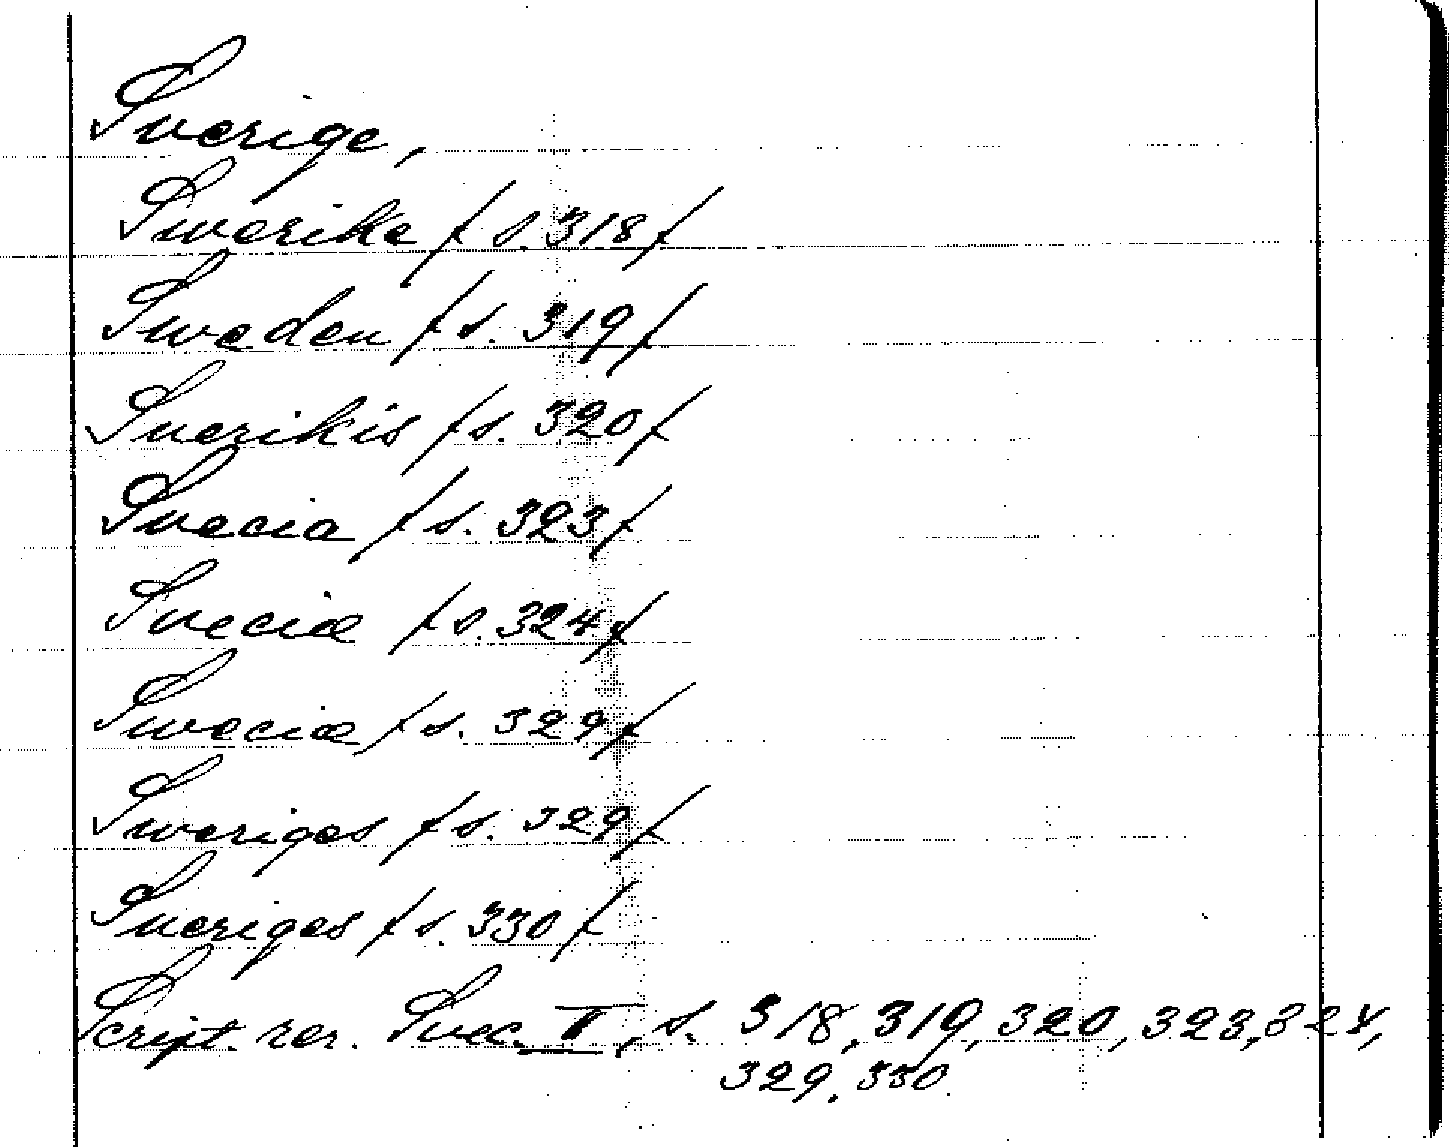 Sverige,
Swerike /s. 318/
Sweden /s. 319/
Suerikis /s. 320/
Suecia /s. 323/
Sueciæ /s. 324/
Sweciæ /s. 329/
Sweriges /s. 329/
Sueriges /s. 330/
Script. rer. Svec. II, s. 318, 319, 320, 323, 324,
329, 330.